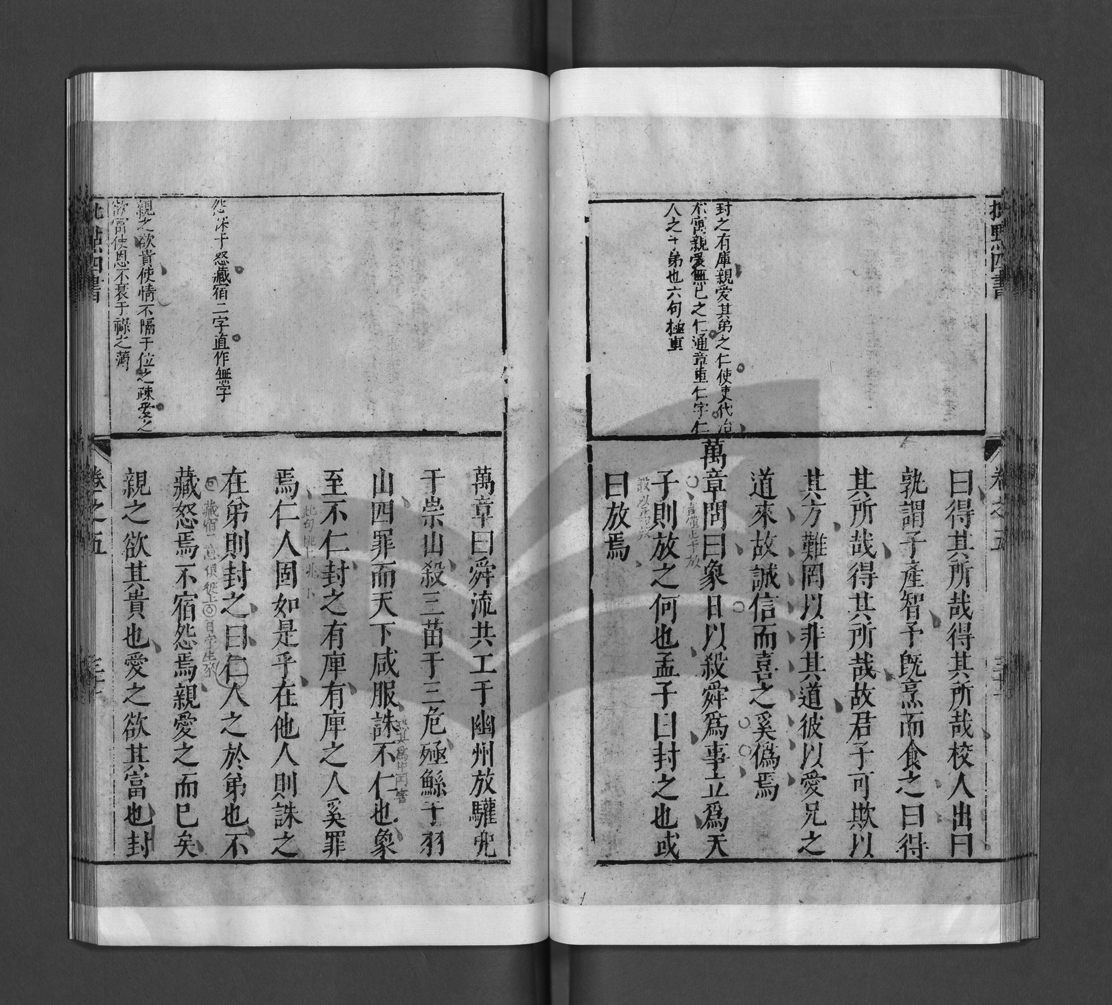 批點四書
卷之五
封之有庳親愛其弟之仁使吏代治
不害親愛無已之仁通章重仁字仁
人之于弟也六句極重
曰得其所哉得其所哉校人出曰
孰謂子產智予既烹而食之曰得
其所哉得其所哉故君子可欺以
其方難罔以非其道彼以愛兄之
道來故誠信而喜之奚偽焉
萬章問曰象日以殺舜為事立為天
子則放之何也孟子曰封之也或
曰放焉
怨誅于怒藏宿二字直作無字
親之欲貴使情不隔于位之疎愛之
欲富使恩不衰于祿之薄
萬章曰舜流共工于幽州放驩兜
于崇山殺三苗于三危殛鯀于羽
山四罪而天下咸服誅不仁也象
至不仁封之有庳有庳之人奚罪
焉仁人固如是乎在他人則誅之
在弟則封之曰仁人之於弟也不
藏怒焉不宿怨焉親愛之而已矣
親之欲其貴也愛之欲其富也封
批點四書
卷之五